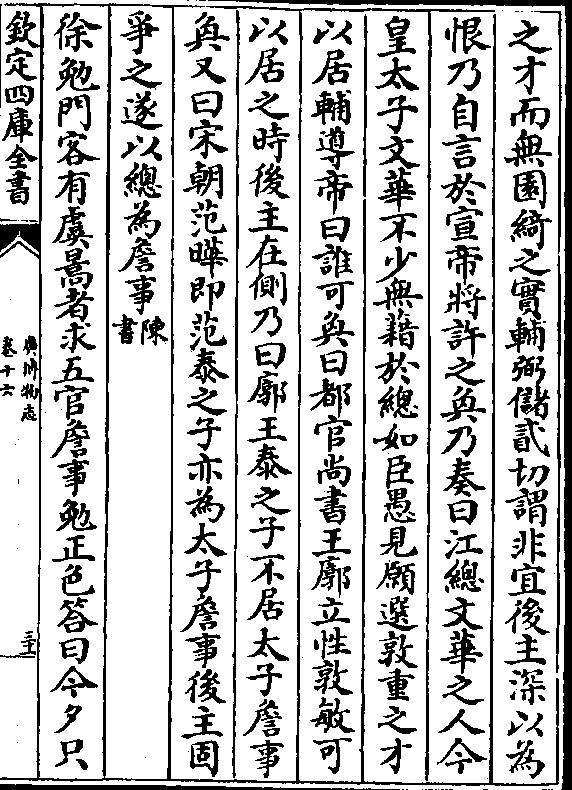 之才而無園綺之實輔弼儲貳切謂非宜後主深以為
恨乃自言於宣帝將許之奐乃奏曰江總文華之人今
皇太子文華不少無藉於總如臣愚見願選敦重之才
以居輔導帝曰誰可奐曰都官尚書王廓立性敦敏可
以居之時後主在側乃曰廓王泰之子不居太子詹事
奐又曰宋朝范曄即范泰之子亦為太子詹事後主固
爭之遂以總為詹事陳書
徐勉門客有虞暠者求五官詹事勉正色答曰今夕只
欽定四庫全書
廣博物志
卷十六
三十